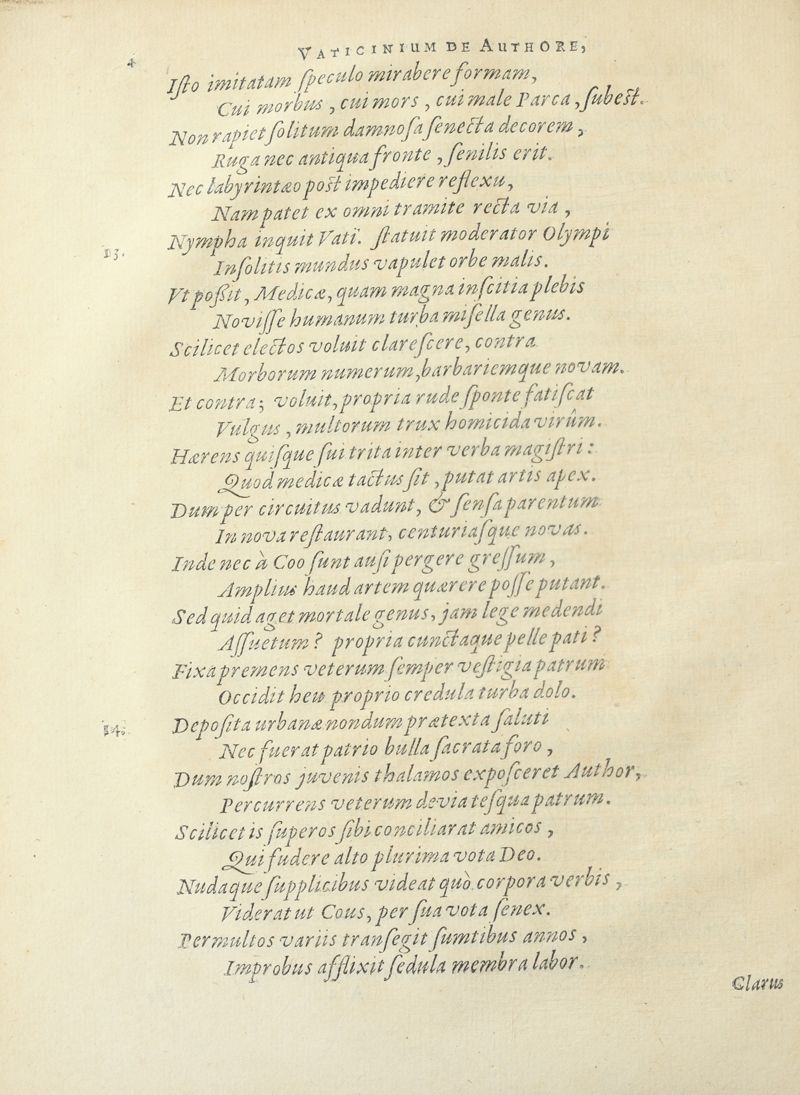 4
VATICINIUM DE AUTHORE,
Iſto imitatam ſpeculo mirabere formam,
Cui morbus, cui mors, cui male Parca, ſubeſt.
Non rapiet ſolitum damnoſa ſenecta decorem,
Ruga nec antiqua fronte, ſenilis erit.
Nec labyrintæo poſt impediere reflexu,
Nam patet ex omni tramite recta via,
13. Nympha inquit Vati. ſtatuit moderator Olympi
Inſolitis mundus vapulet orbe malis.
Vt poßit, Medicæ, quam magna inſcitia plebis
Noviſſe humanum turba miſella genus.
Scilicet electos voluit clareſcere, contra
Morborum numerum, barbariemque novam.
Et contra; voluit, propria rude ſponte fatiſcat
Vulgus, multorum trux homicida virûm.
Hærens quiſque ſui trita inter verba magiſtri:
Quod medicæ tactus ſit, putat artis apex.
Dum per circuitus vadunt, & ſenſa parentum
In nova reſtaurant, centuriaſque novas.
Inde nec à Coo ſunt auſi pergere greſſum,
Amplius haud artem quærere poſſe putant.
Sed quid aget mortale genus, jam lege medendi
Aſſuetum? propria cunctaque pelle pati?
Fixa premens veterum ſemper veſtigia patrum
Occidit heu proprio credula turba dolo.
14. Depoſita urbanæ nondum prætexta ſaluti
Nec fuerat patrio bulla ſacrata foro,
Dum noſtros juvenis thalamos expoſceret Author,
Percurrens veterum devia teſqua patrum.
Scilicet is ſuperos ſibi conciliarat amicos,
Qui fudere alto plurima vota Deo.
Nudaque ſupplicibus videat quò corpora verbis,
Viderat ut Cous, per ſua vota ſenex.
Permultos variis tranſegit ſumtibus annos,
Improbus afflixit ſedula membra labor.
Clarus